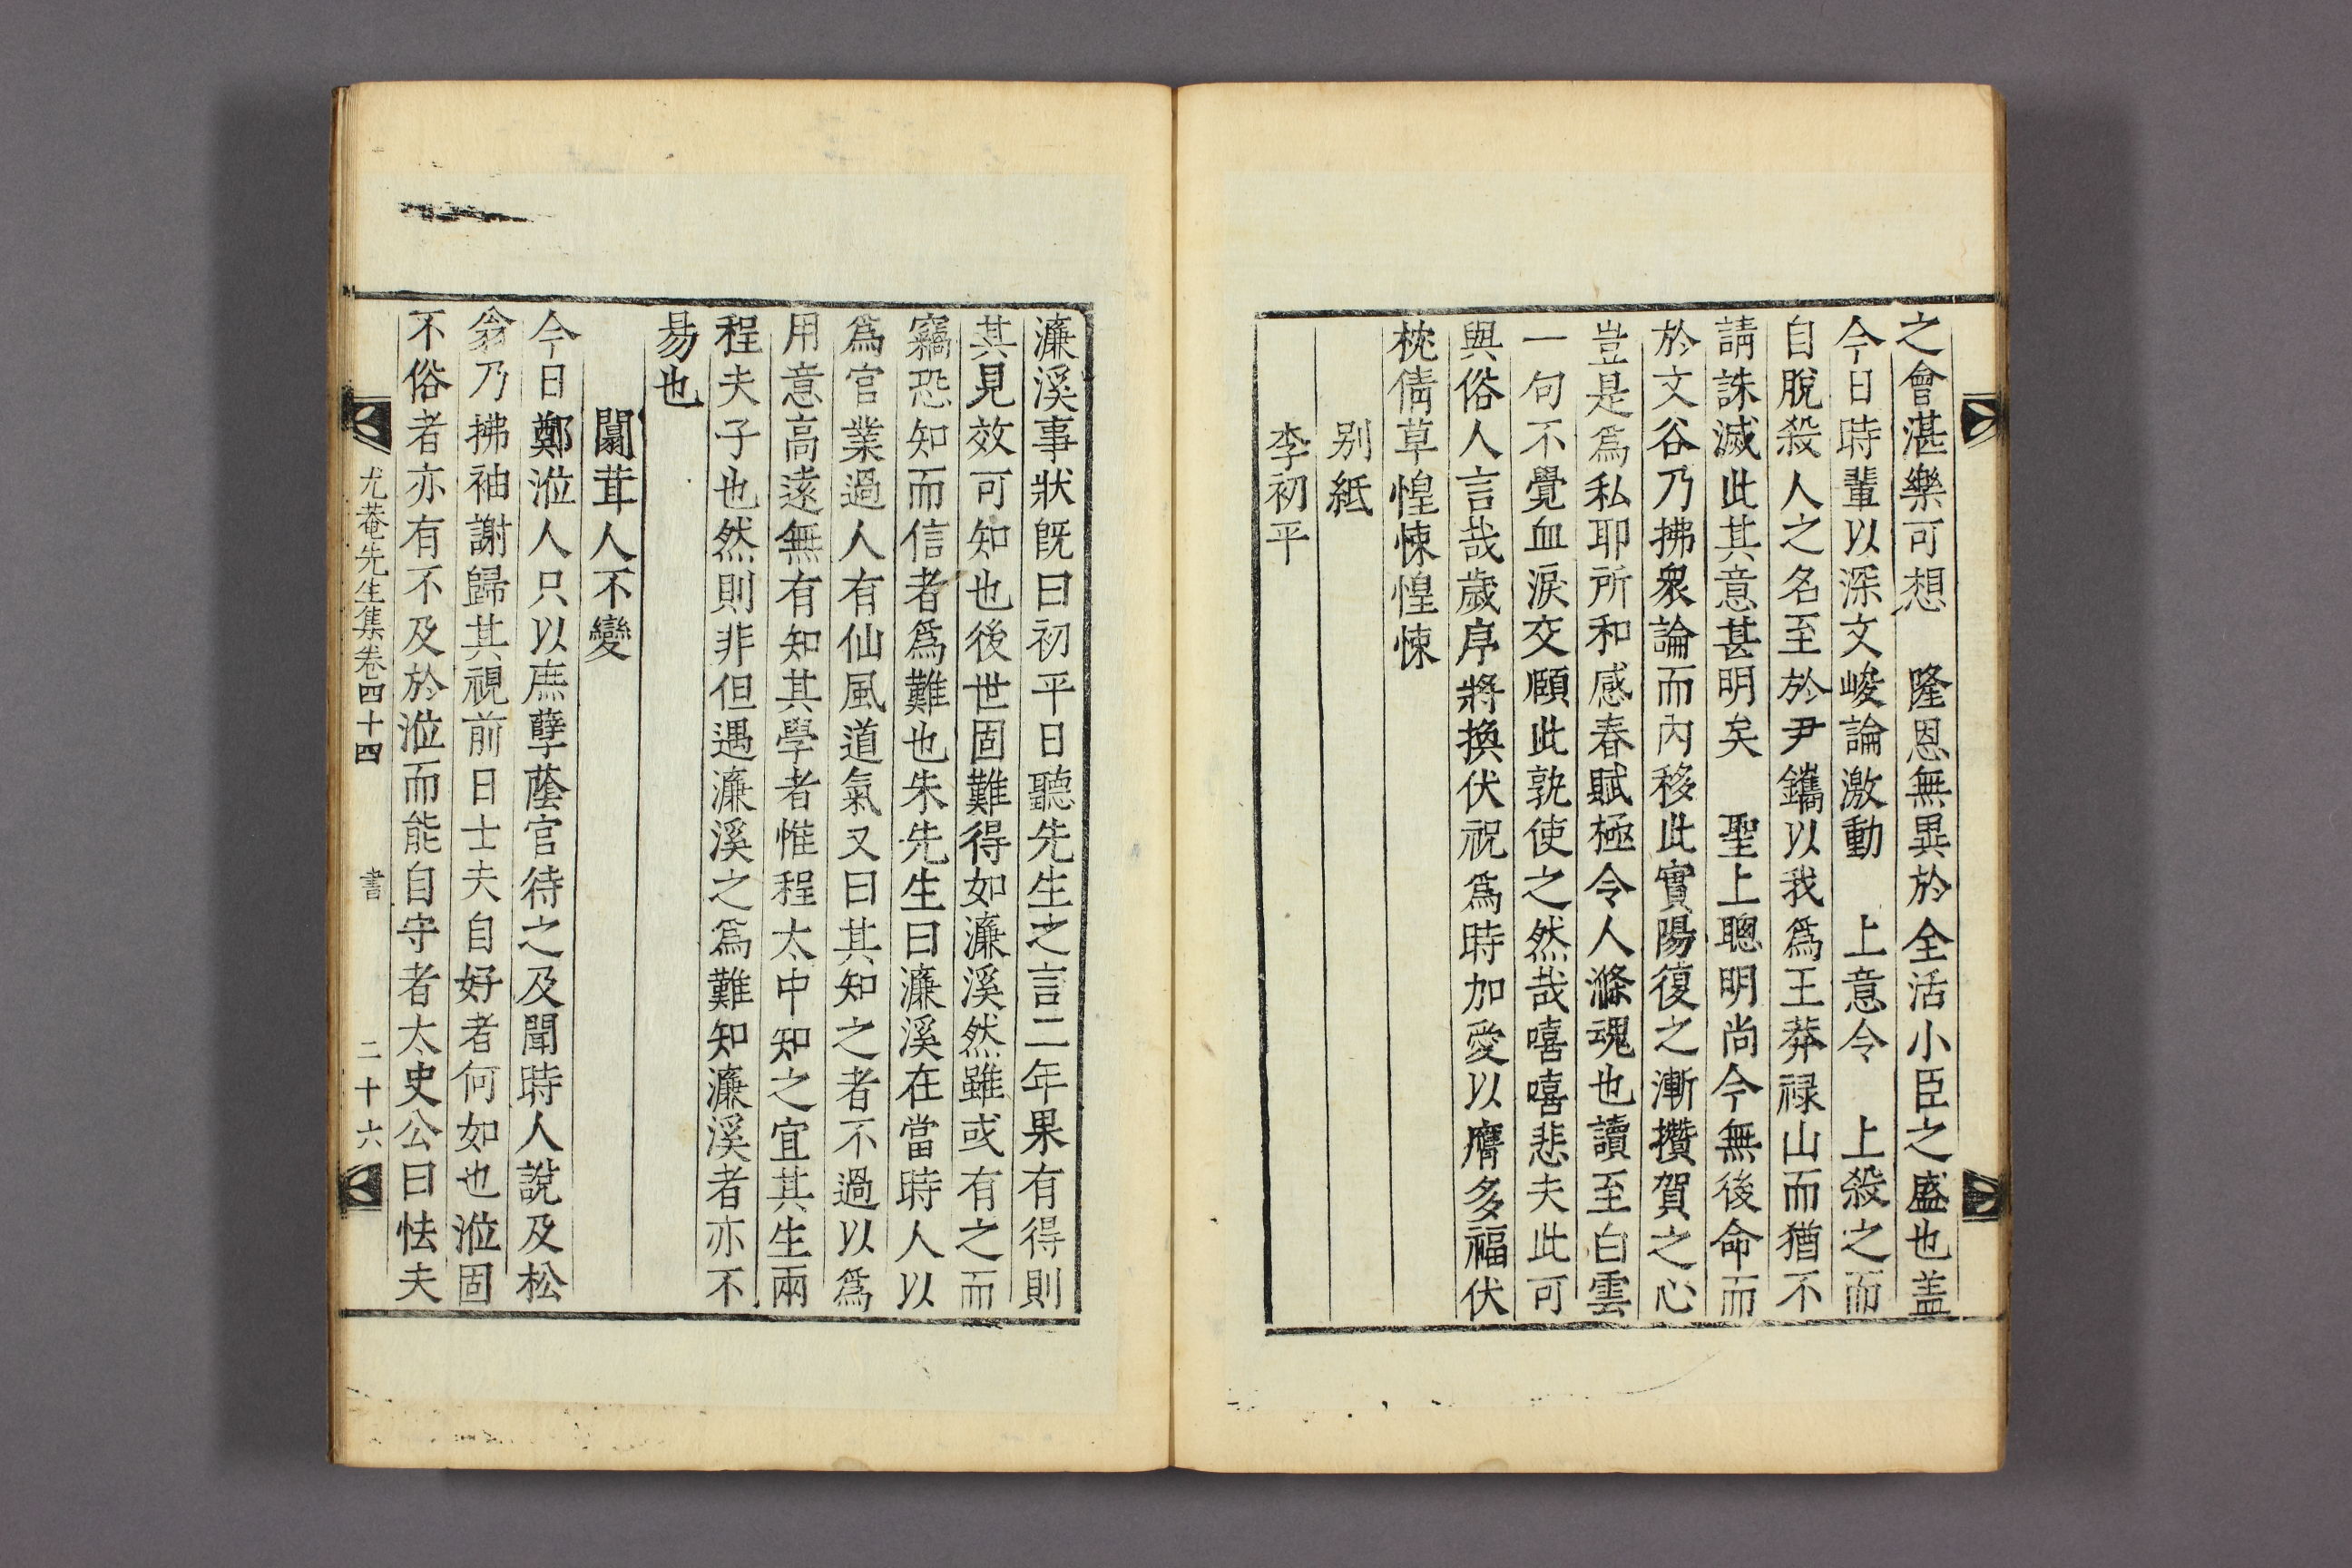 之會湛樂可想　隆恩無異於全活小臣之盛也盖
今日時輩以深文峻論激動　上意令　上殺之而
自脫殺人之名至於尹鑴以我爲王莽祿山而猶不
請誅滅此其意甚明矣　聖上聰明尚今無後命而
於文谷乃拂衆論而內移此實陽復之漸攢賀之心
豈是爲私耶所和感春賦極令人滌魂也讀至白雲
一句不覺血淚交頤此孰使之然哉嘻嘻悲夫此可
與俗人言哉歲序將換伏祝爲時加愛以膺多福伏
枕倩草惶悚惶悚
別紙
李初平
濂溪事狀旣曰初平日聽先生之言二年果有得則
其見效可知也後世固難得如濂溪然雖或有之而
竊恐知而信者爲難也朱先生曰濂溪在當時人以
爲官業過人有仙風道氣又曰其知之者不過以爲
用意高遠無有知其學者惟程太中知之宜其生兩
程夫子也然則非但遇濂溪之爲難知濂溪者亦不
易也
闒茸人不變
今日鄭涖人只以庶孽蔭官待之及聞時人說及松
翁乃拂袖謝歸其視前日士夫自好者何如也涖固
不俗者亦有不及於涖而能自守者太史公曰怯夫
尤菴先生集卷四十四　書　二十六